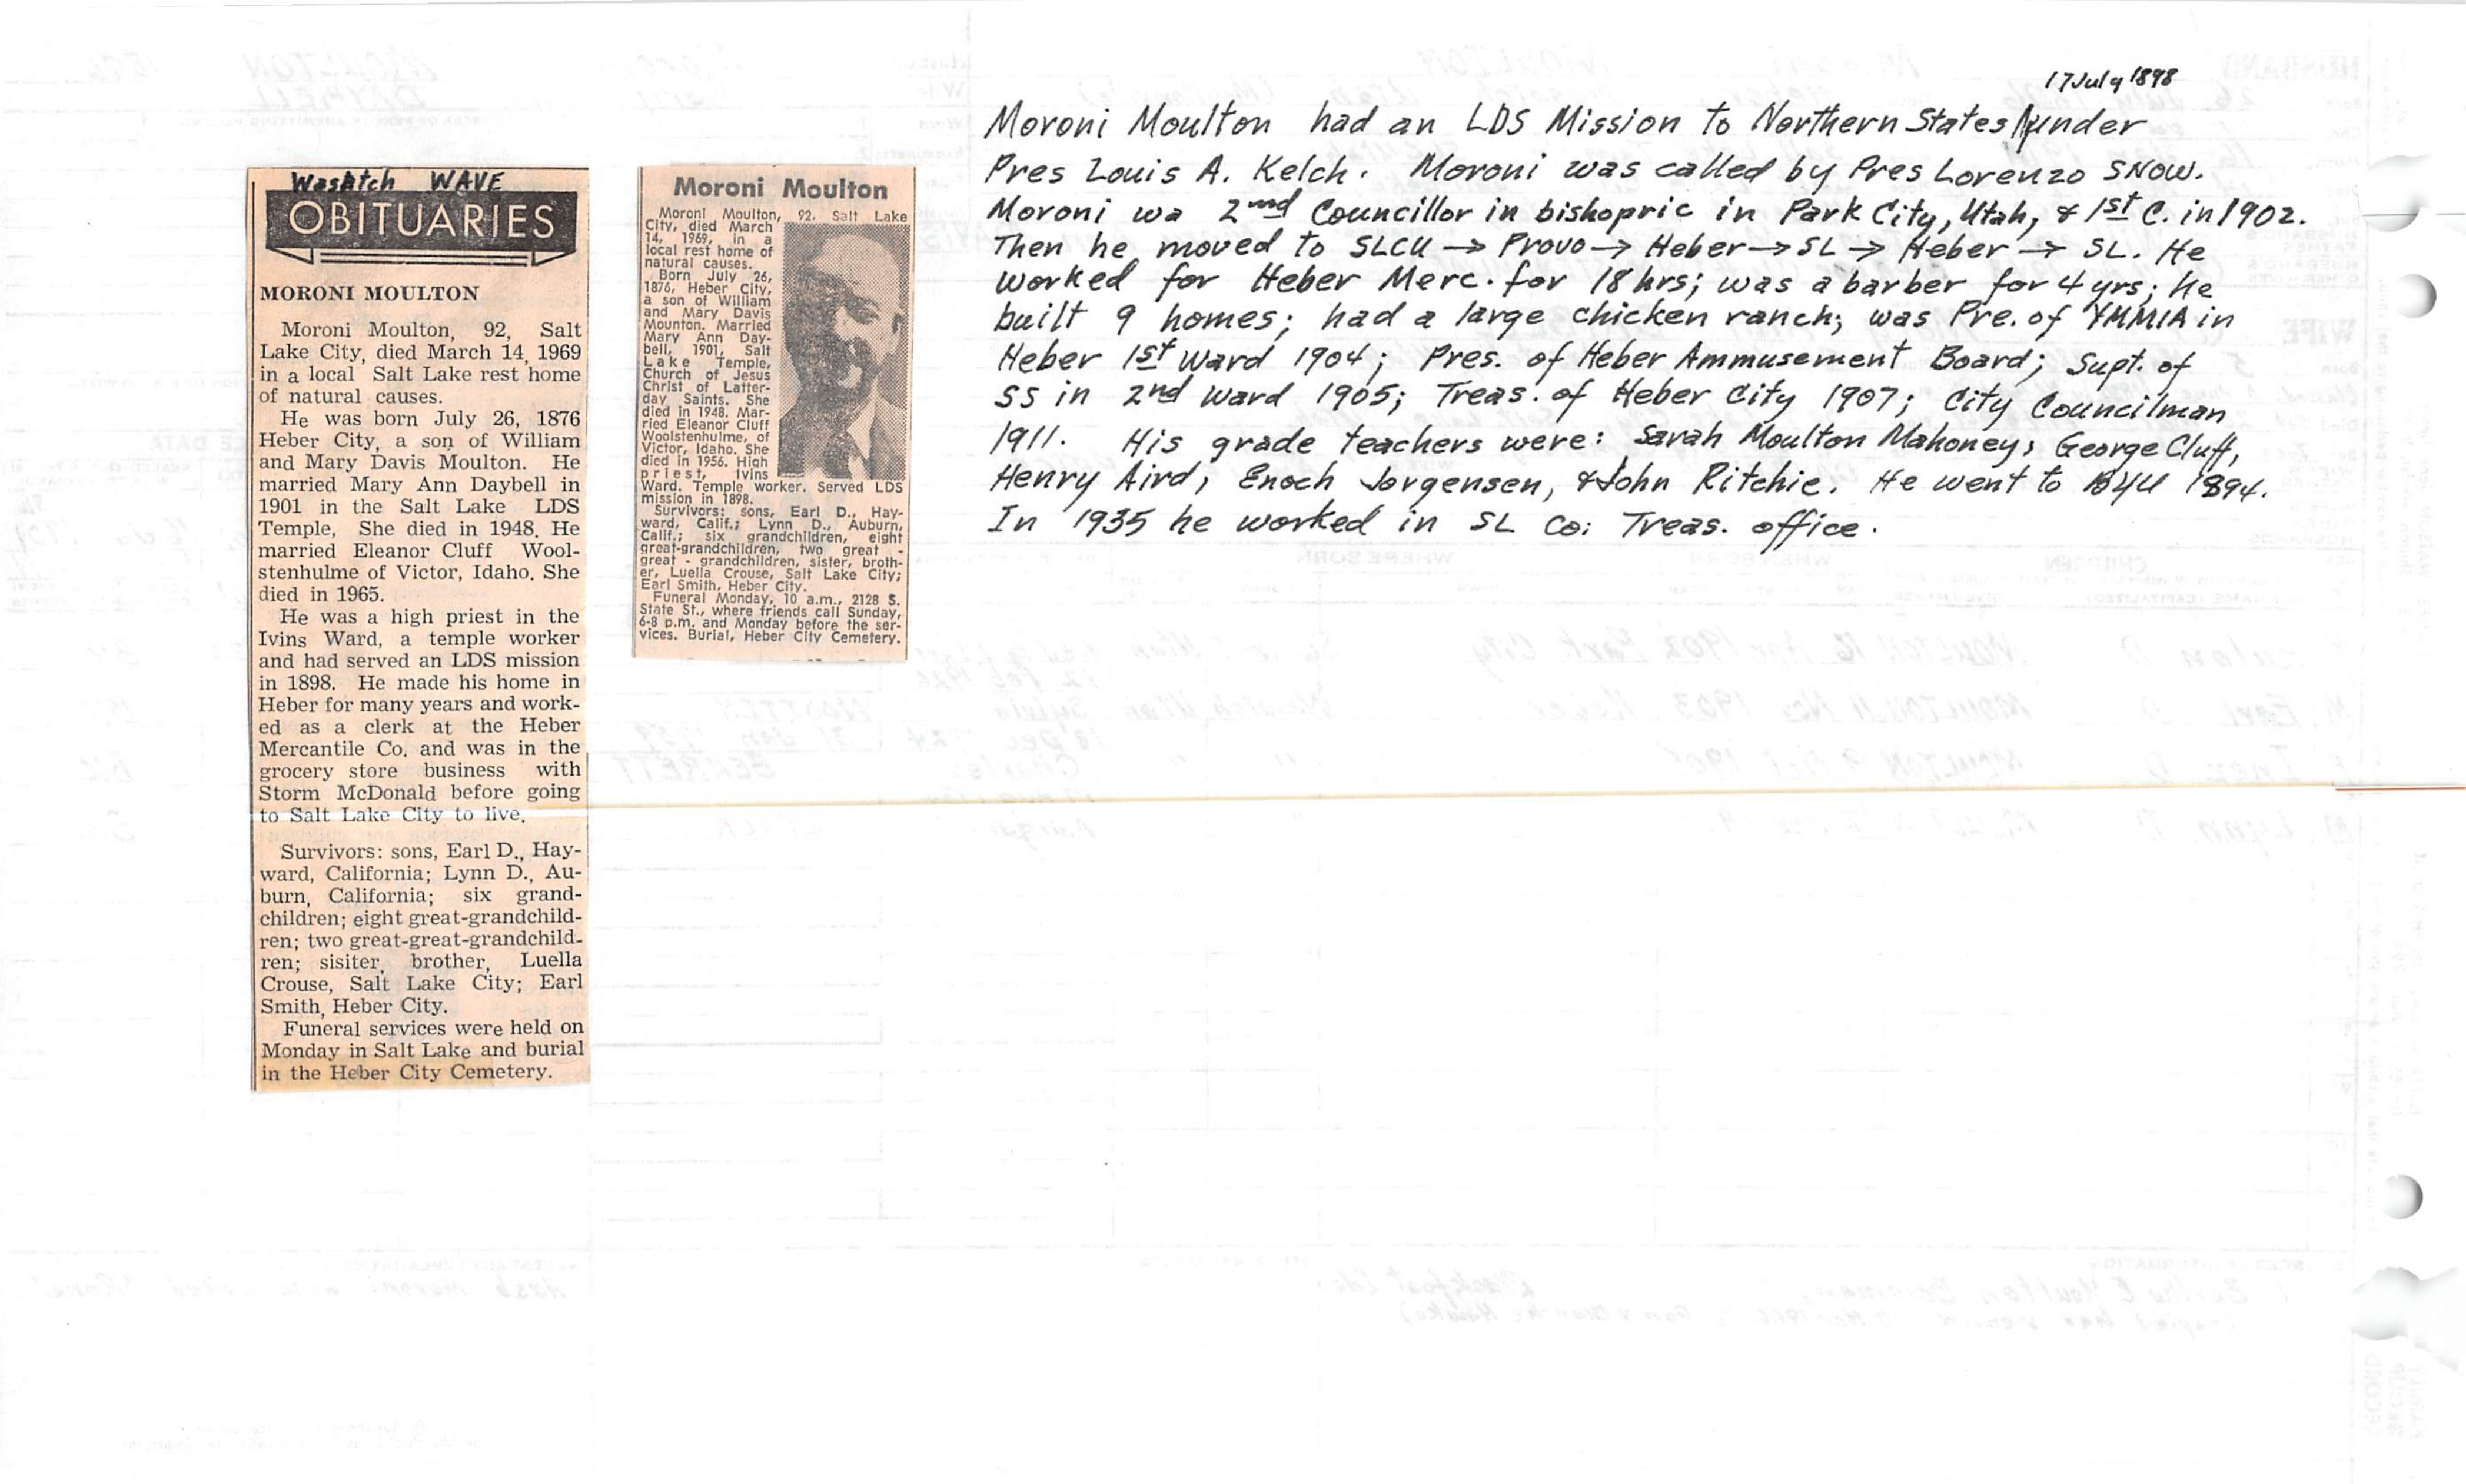 Wasatch WAVE
OBITUARIES
MORONI MOULTON
Moroni Moulton, 92, Salt
Lake City, died March 14, 1969
in a local Salt Lake rest home
of natural causes.
He was born July 26, 1876
Heber City, a son of William
and Mary Davis Moulton. He
married Mary Ann Daybell in
1901 in the Salt Lake LDS
Temple, She died in 1948. He
married Eleanor Cluff Wool-
stenhulme of Victor, Idaho. She
died in 1965.
He was a high priest in the
Ivins Ward, a temple worker
and had served an LDS mission
in 1898. He made his home in
Heber for many years and work-
ed as a clerk at the Heber
Mercantile Co. and was in the
grocery store business with
Storm McDonald before going
to Salt Lake City to live.
Survivors: sons, Earl D., Hay-
ward, California; Lynn D., Au-
burn, California; six grand-
children; eight great-grandchild-
ren; two great-great-grandchild-
ren; sisiter, brother, Luella
Crouse, Salt Lake City; Earl
Smith, Heber City.
Funeral services were held on
Monday in Salt Lake and burial
in the Heber City Cemetery.
Moroni Moulton
Moroni Moulton, 92, Salt Lake
City, died March
14, 1969, in a
local rest home of
natural causes.
Born July 26,
1876, Heber City,
a son of William
and Mary Davis
Mounton. Married
Mary Ann Day-
bell, 1901, Salt
Lake Temple,
Church of Jesus
Christ of Latter-
day Saints. She
died in 1948. Mar-
ried Eleanor Cluff
Woolstenhulme, of
Victor, Idaho. She
died in 1956. High
priest, Ivins
Ward. Temple worker. Served LDS
mission in 1898.
Survivors: sons, Earl D., Hay-
ward, Calif.; Lynn D., Auburn,
Calif.; six grandchildren, eight
great-grandchildren, two great -
great - grandchildren, sister, broth-
er, Luella Crouse, Salt Lake City;
Earl Smith, Heber City.
Funeral Monday, 10 a.m., 2128 S.
State St., where friends call Sunday,
6-8 p.m. and Monday before the ser-
vices. Burial, Heber City Cemetery.
17 July 1898
Moroni Moulton had an LDS Mission to Northern States under
Pres Louis A. Kelch. Moroni was called by Pres Lorenzo SNOW.
Moroni wa 2nd Councillor in bishopric in Park City, Utah, & 1st C. in 1902.
Then he moved to SLCU → Provo → Heber → SL → Heber → SL. He
worked for Heber Merc. for 18 hrs; was a barber for 4 yrs; he
built 9 homes; had a large chicken ranch; was Pre. of YMMIA in
Heber 1st Ward 1904; Pres. of Heber Ammusement Board; Supt. of
SS in 2nd Ward 1905; Treas. of Heber City 1907; City Councilman
1911. His grade teachers were: Sarah Moulton Mahoney, George Cluff,
Henry Aird, Enoch Jorgensen, & John Ritchie. He went to BYU 1894.
In 1935 he worked in SL Co: Treas. office.